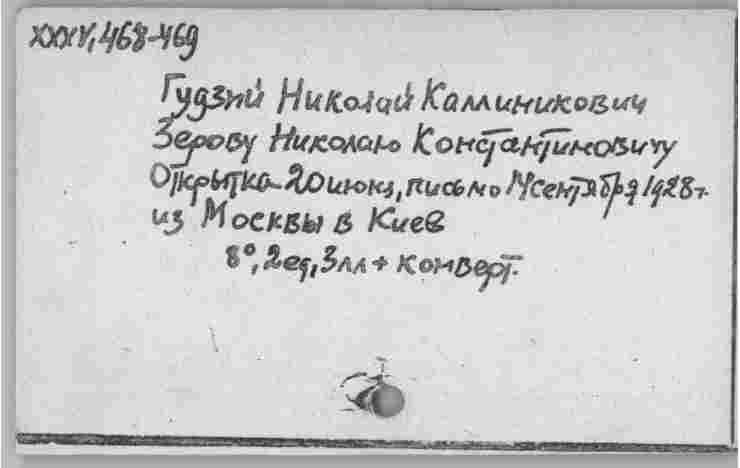 XXXV, 468-469
Гудзий Николай Каллиникович
Зерову Николаю Константиновичу
Открытка 20 июня, письмо 14 сентября 1928 г.
из Москвы в Киев
8°, 2 ед, 3 лл + конверт.